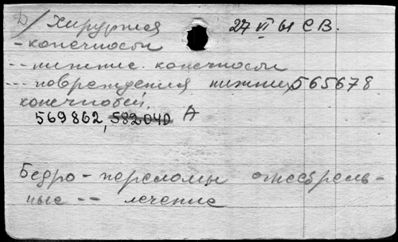 D/ Хирургия 27 VI 61 СВ.
- конечности
-- нижние. конечности
-- повреждения нижних 565678
конечностей.
569862, 582040 А
Бедро - переломы огнестрель-
ные -- лечение